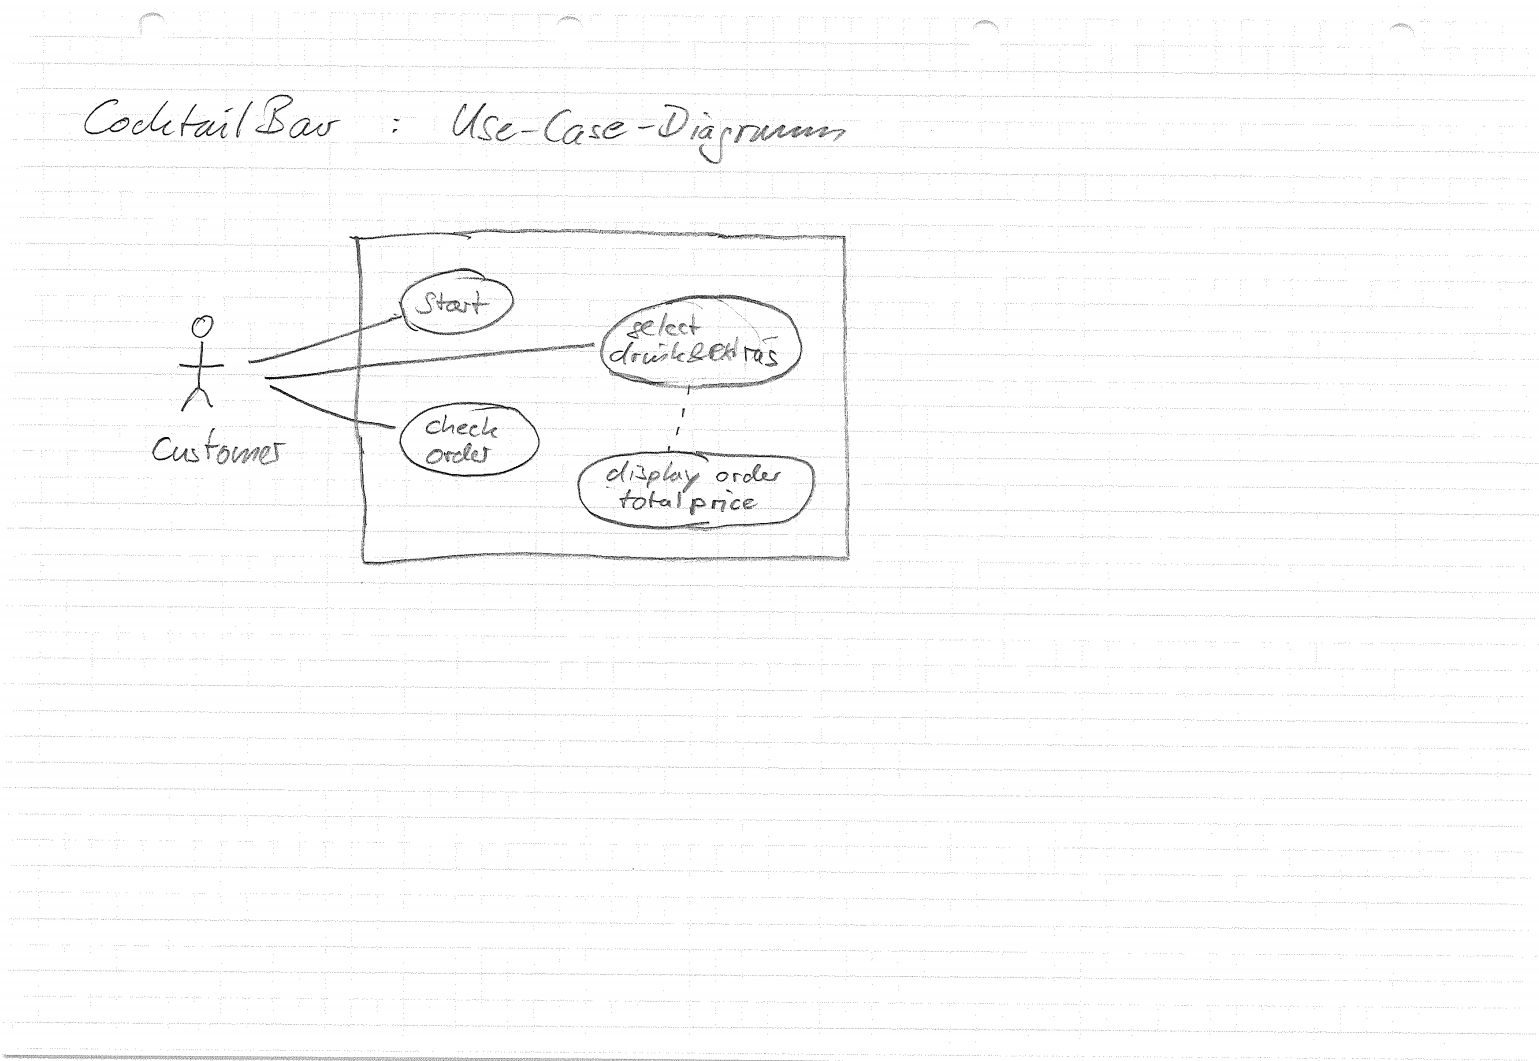 CocktailBar : Use-Case-Diagramm
Start
select
drink&extras
Customer
check
order
display order
total price